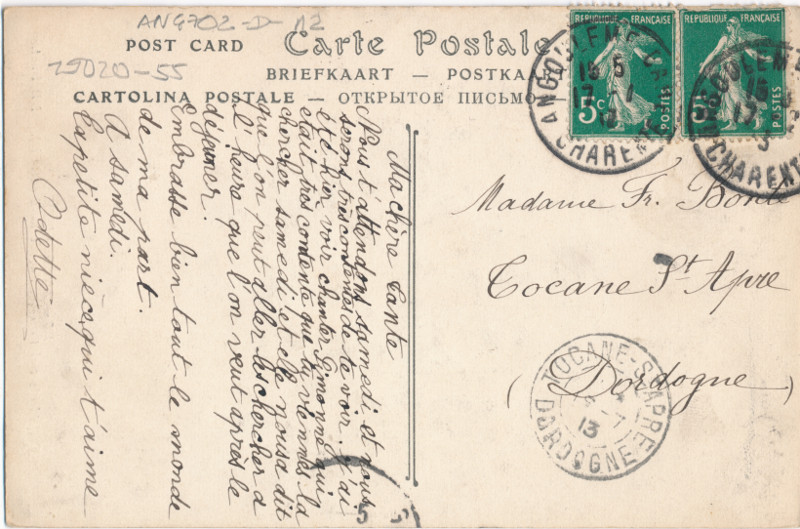 ANG702-D-A2
POST CARD
Carte Postale
29020-55
BRIEFKAART — POSTKAA
CARTOLINA POSTALE — ОТКРЫТОЕ ПИСЬМО
REPUBLIQUE FRANÇAISE
5c
POSTES
REPUBLIQUE FRANÇAISE
POSTES
ANGOULEME
CHARENTE
ANGOULEME
CHARENTE
Ma chère Tante
Nous t'attendons samedi et nous
serons très contentes de te voir. J'ai
été hier voir chanter Simonne qui
était très contente que tu viennes la
chercher samedi et elle nous a dit
que l'on peut aller les chercher à
l'heure que l'on veut après le
déjeuner.
Embrasse bien tout le monde
de ma part.
A samedi.
Ta petite nièce qui t'aime
Odette
Madame Fr. Bonte
Tocane St Apre
(Dordogne)
TOCANE-ST-APRE
13
DORDOGNE